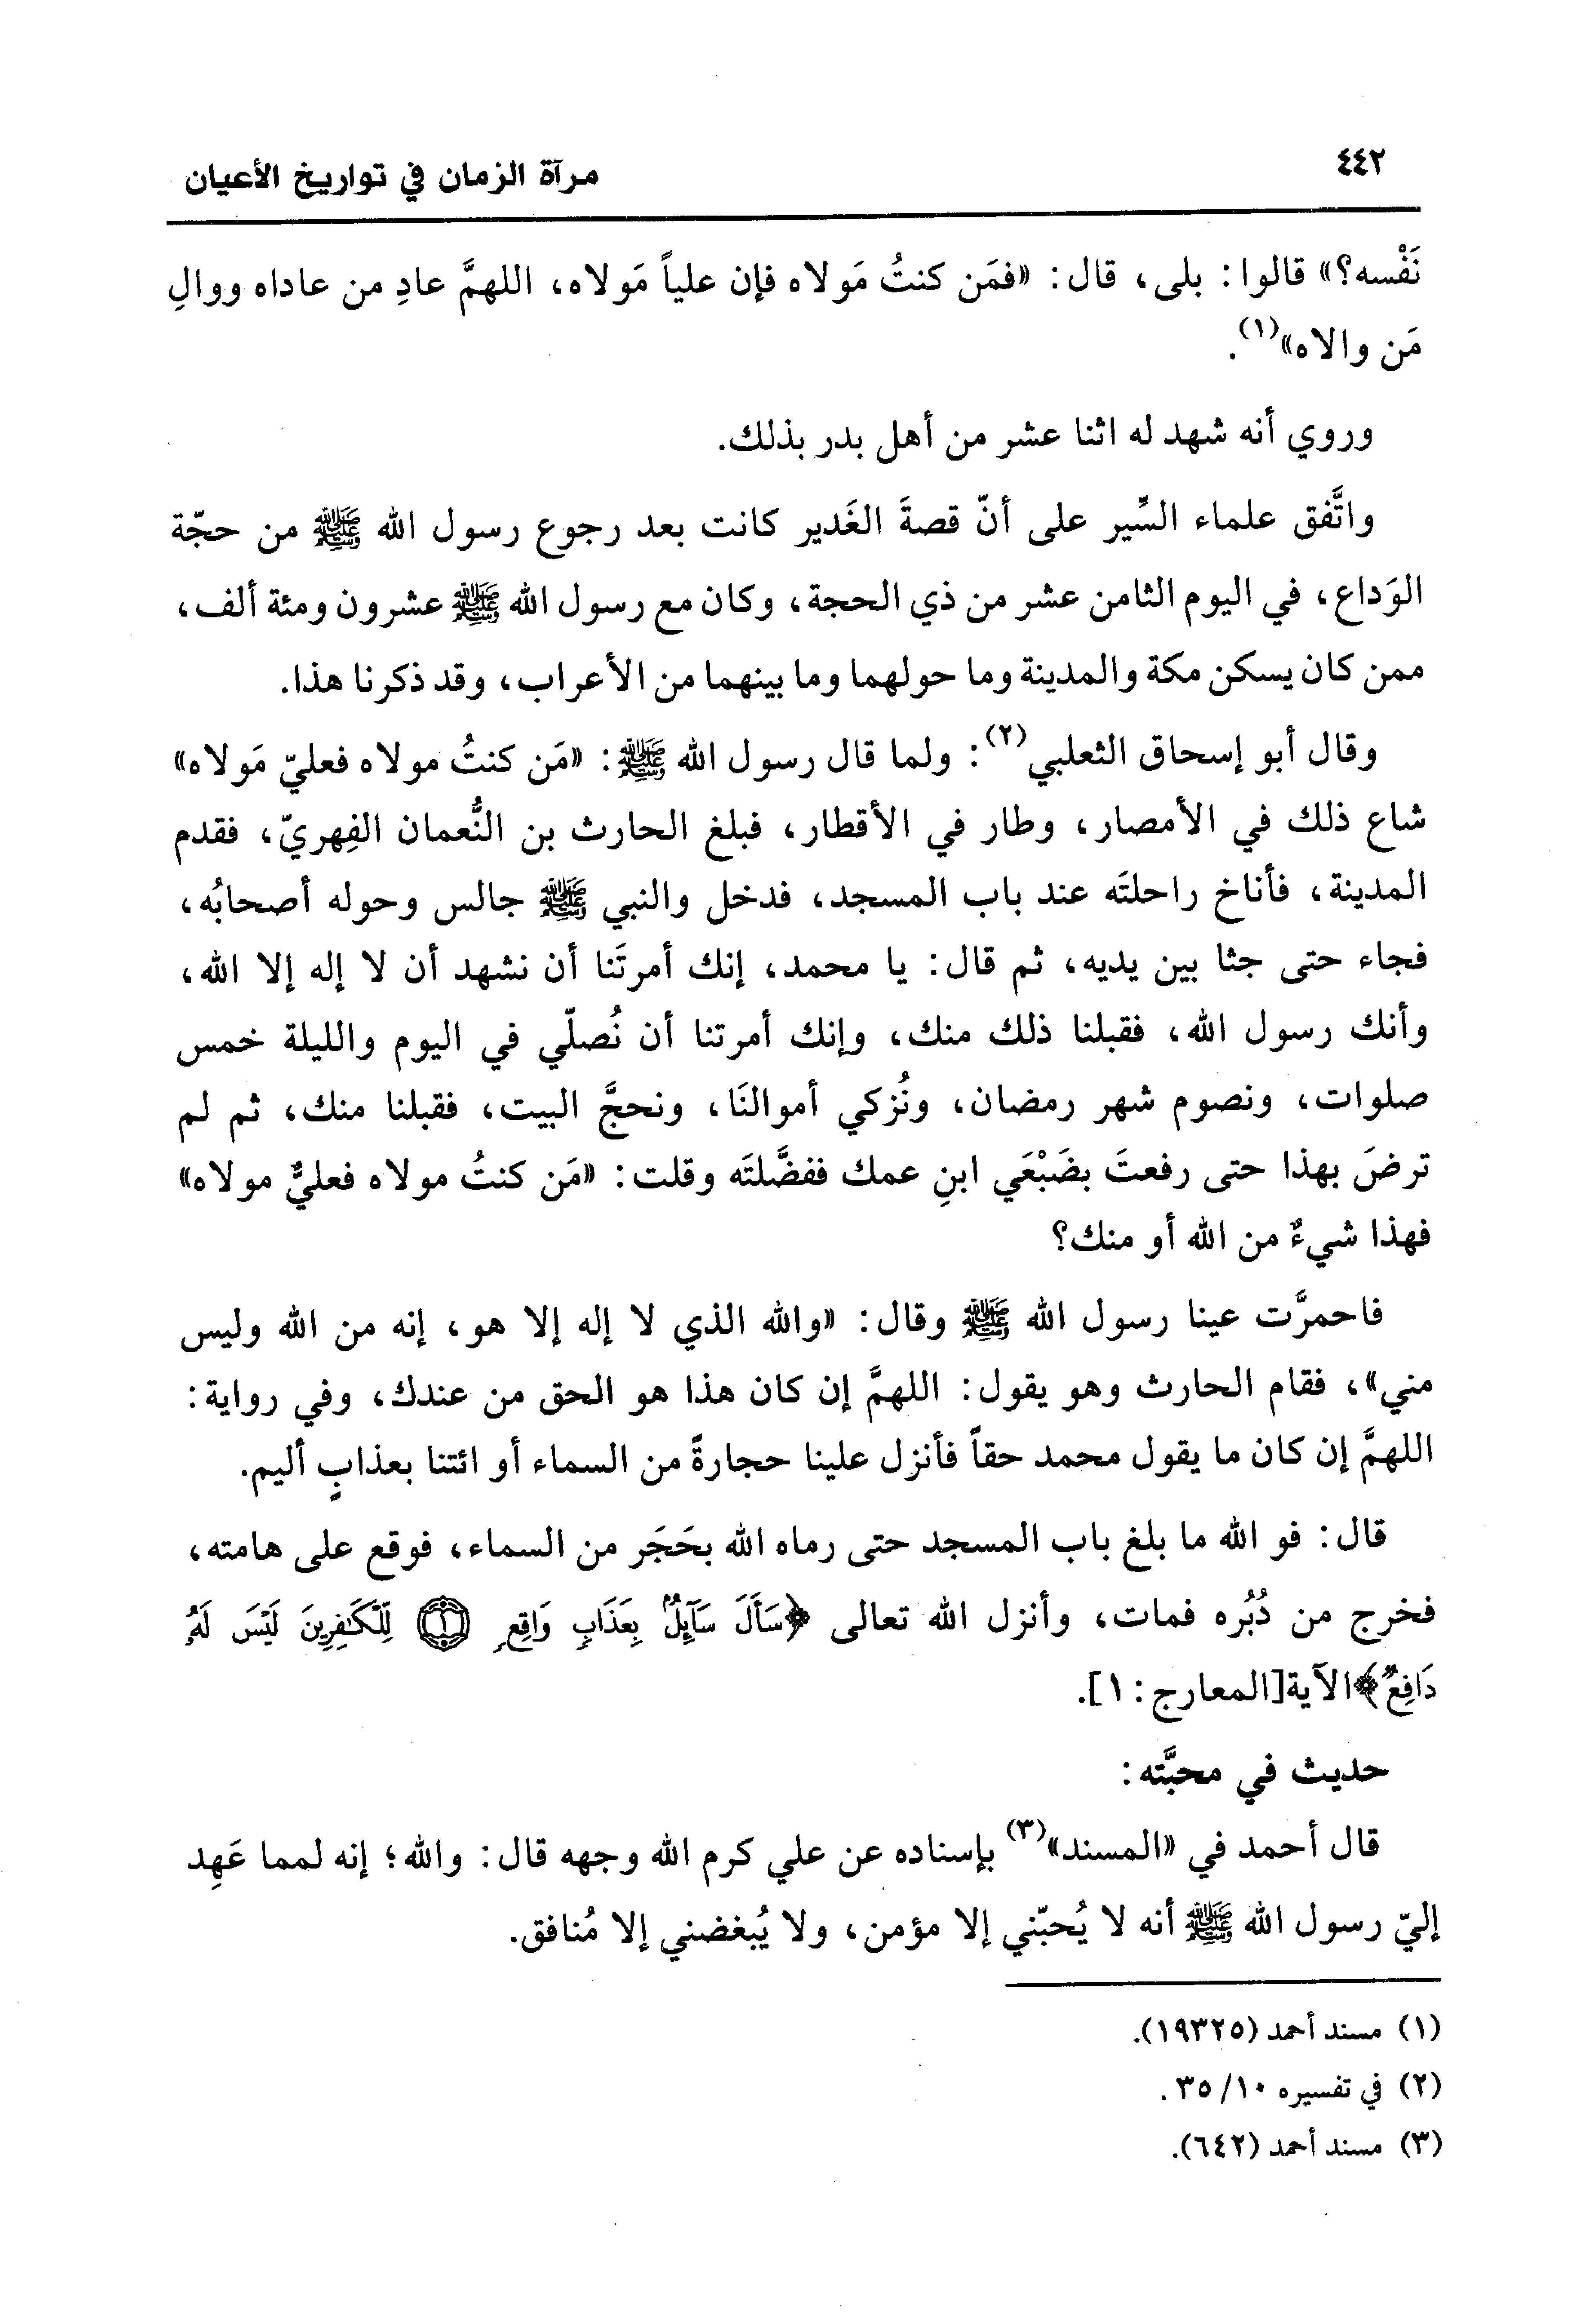 ٤٤٢
مرآة الزمان في تواريخ الأعيان
نَفْسه؟» قالوا: بلى، قال: «فمَن كنتُ مَولاه فإن علياً مَولاه، اللهمَّ عادِ من عاداه ووالِ
مَن والاه»(١).
وروي أنه شهد له اثنا عشر من أهل بدر بذلك.
واتَّفق علماء السِّير على أنّ قصةَ الغَدير كانت بعد رجوع رسول الله ﷺ من حجّة
الوَداع، في اليوم الثامن عشر من ذي الحجة، وكان مع رسول الله ﷺ عشرون ومئة ألف،
ممن كان يسكن مكة والمدينة وما حولهما وما بينهما من الأعراب، وقد ذكرنا هذا.
وقال أبو إسحاق الثعلبي(٢): ولما قال رسول الله ﷺ: «مَن كنتُ مولاه فعليّ مَولاه»
شاع ذلك في الأمصار، وطار في الأقطار، فبلغ الحارث بن النُّعمان الفِهريّ، فقدم
المدينة، فأناخ راحلتَه عند باب المسجد، فدخل والنبي ﷺ جالس وحوله أصحابُه،
فجاء حتى جثا بين يديه، ثم قال: يا محمد، إنك أمرتَنا أن نشهد أن لا إله إلا الله،
وأنك رسول الله، فقبلنا ذلك منك، وإنك أمرتنا أن نُصلّي في اليوم والليلة خمس
صلوات، ونصوم شهر رمضان، ونُزكي أموالنَا، ونحجَّ البيت، فقبلنا منك، ثم لم
ترضَ بهذا حتى رفعتَ بضَبْعَي ابنِ عمك ففضَّلتَه وقلت: «مَن كنتُ مولاه فعليٌّ مولاه»
فهذا شيءٌ من الله أو منك؟
فاحمرَّت عينا رسول الله ﷺ وقال: «والله الذي لا إله إلا هو، إنه من الله وليس
مني»، فقام الحارث وهو يقول: اللهمَّ إن كان هذا هو الحق من عندك، وفي رواية:
اللهمَّ إن كان ما يقول محمد حقاً فأنزل علينا حجارةً من السماء أو ائتنا بعذابٍ أليم.
قال: فو الله ما بلغ باب المسجد حتى رماه الله بحَجَر من السماء، فوقع على هامته،
فخرج من دُبُره فمات، وأنزل الله تعالى ﴿سَأَلَ سَآئِلُۢ بِعَذَابٖ وَاقِعٖ ۝١ لِّلۡكَٰفِرِينَ لَيۡسَ لَهُۥ
دَافِعٞ﴾الآية[المعارج: ١].
حديث في محبَّته:
قال أحمد في «المسند»(٣) بإسناده عن علي كرم الله وجهه قال: والله؛ إنه لمما عَهِد
إليّ رسول الله ﷺ أنه لا يُحبّني إلا مؤمن، ولا يُبغضني إلا مُنافق.
(١) مسند أحمد (١٩٣٢٥).
(٢) في تفسيره ١٠/ ٣٥ .
(٣) مسند أحمد (٦٤٢).